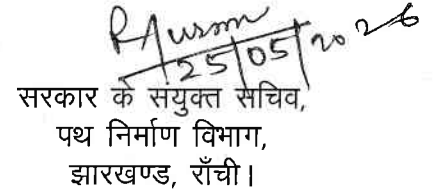 25/05/2026
सरकार के संयुक्त सचिव,
पथ निर्माण विभाग,
झारखण्ड, राँची।